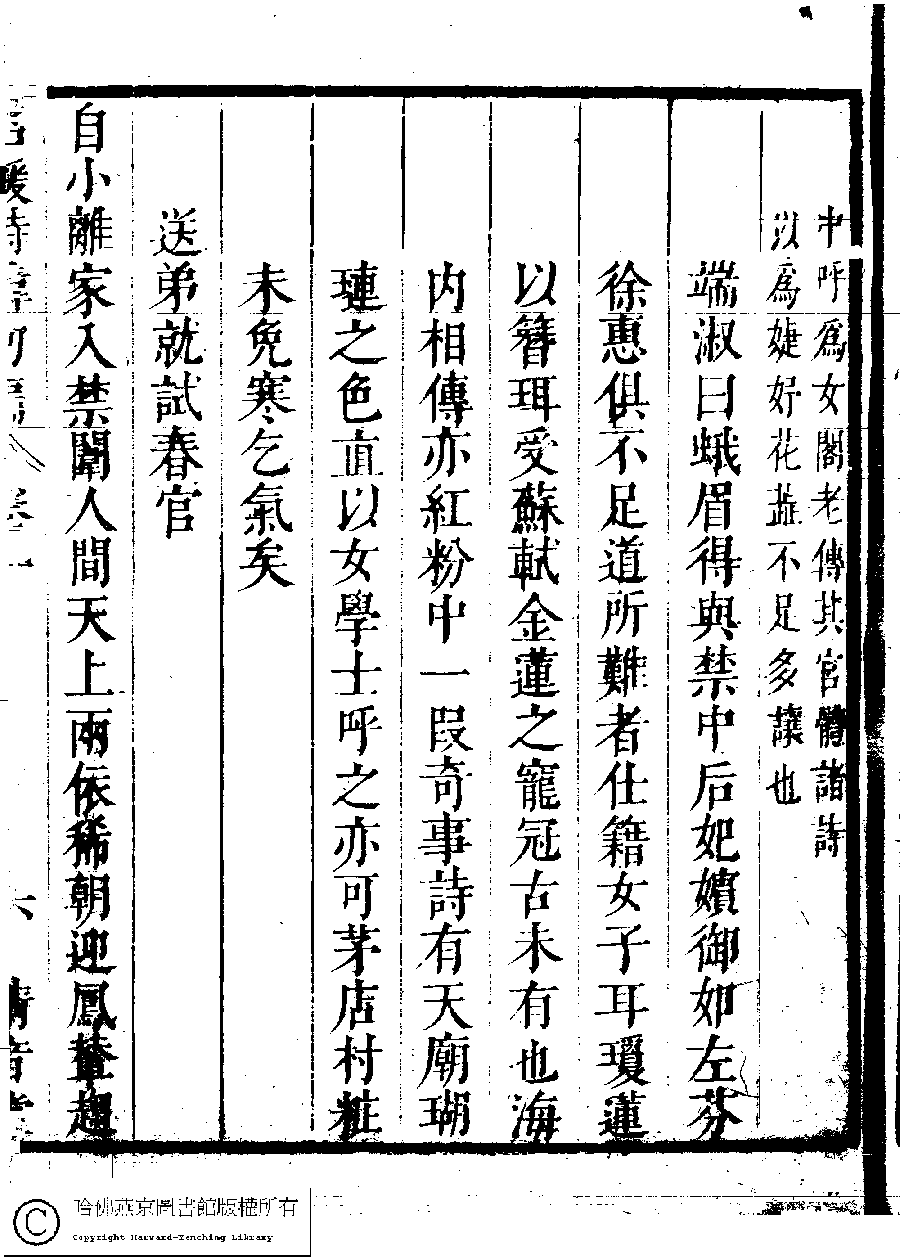 中呼爲女閣老傳其官體諸詩
以爲婕妤花蕋不足多讓也
端淑曰蛾眉得與禁中后妃嬪御如左芬
徐惠俱不足道所難者仕籍女子耳瓊蓮
以簪珥受蘇軾金蓮之寵冠古未有也海
内相傳亦紅粉中一段奇事詩有天廟瑚
璉之色直以女學士呼之亦可茅店村粧
未免寒乞氣矣
送弟就試春官
自小離家入禁闈人間天上兩依稀朝迎鳳輦趨
名媛詩緯初編 卷二 六 清音堂
哈佛燕京圖書館版權所有
Copyright Harvard-Yenching Library